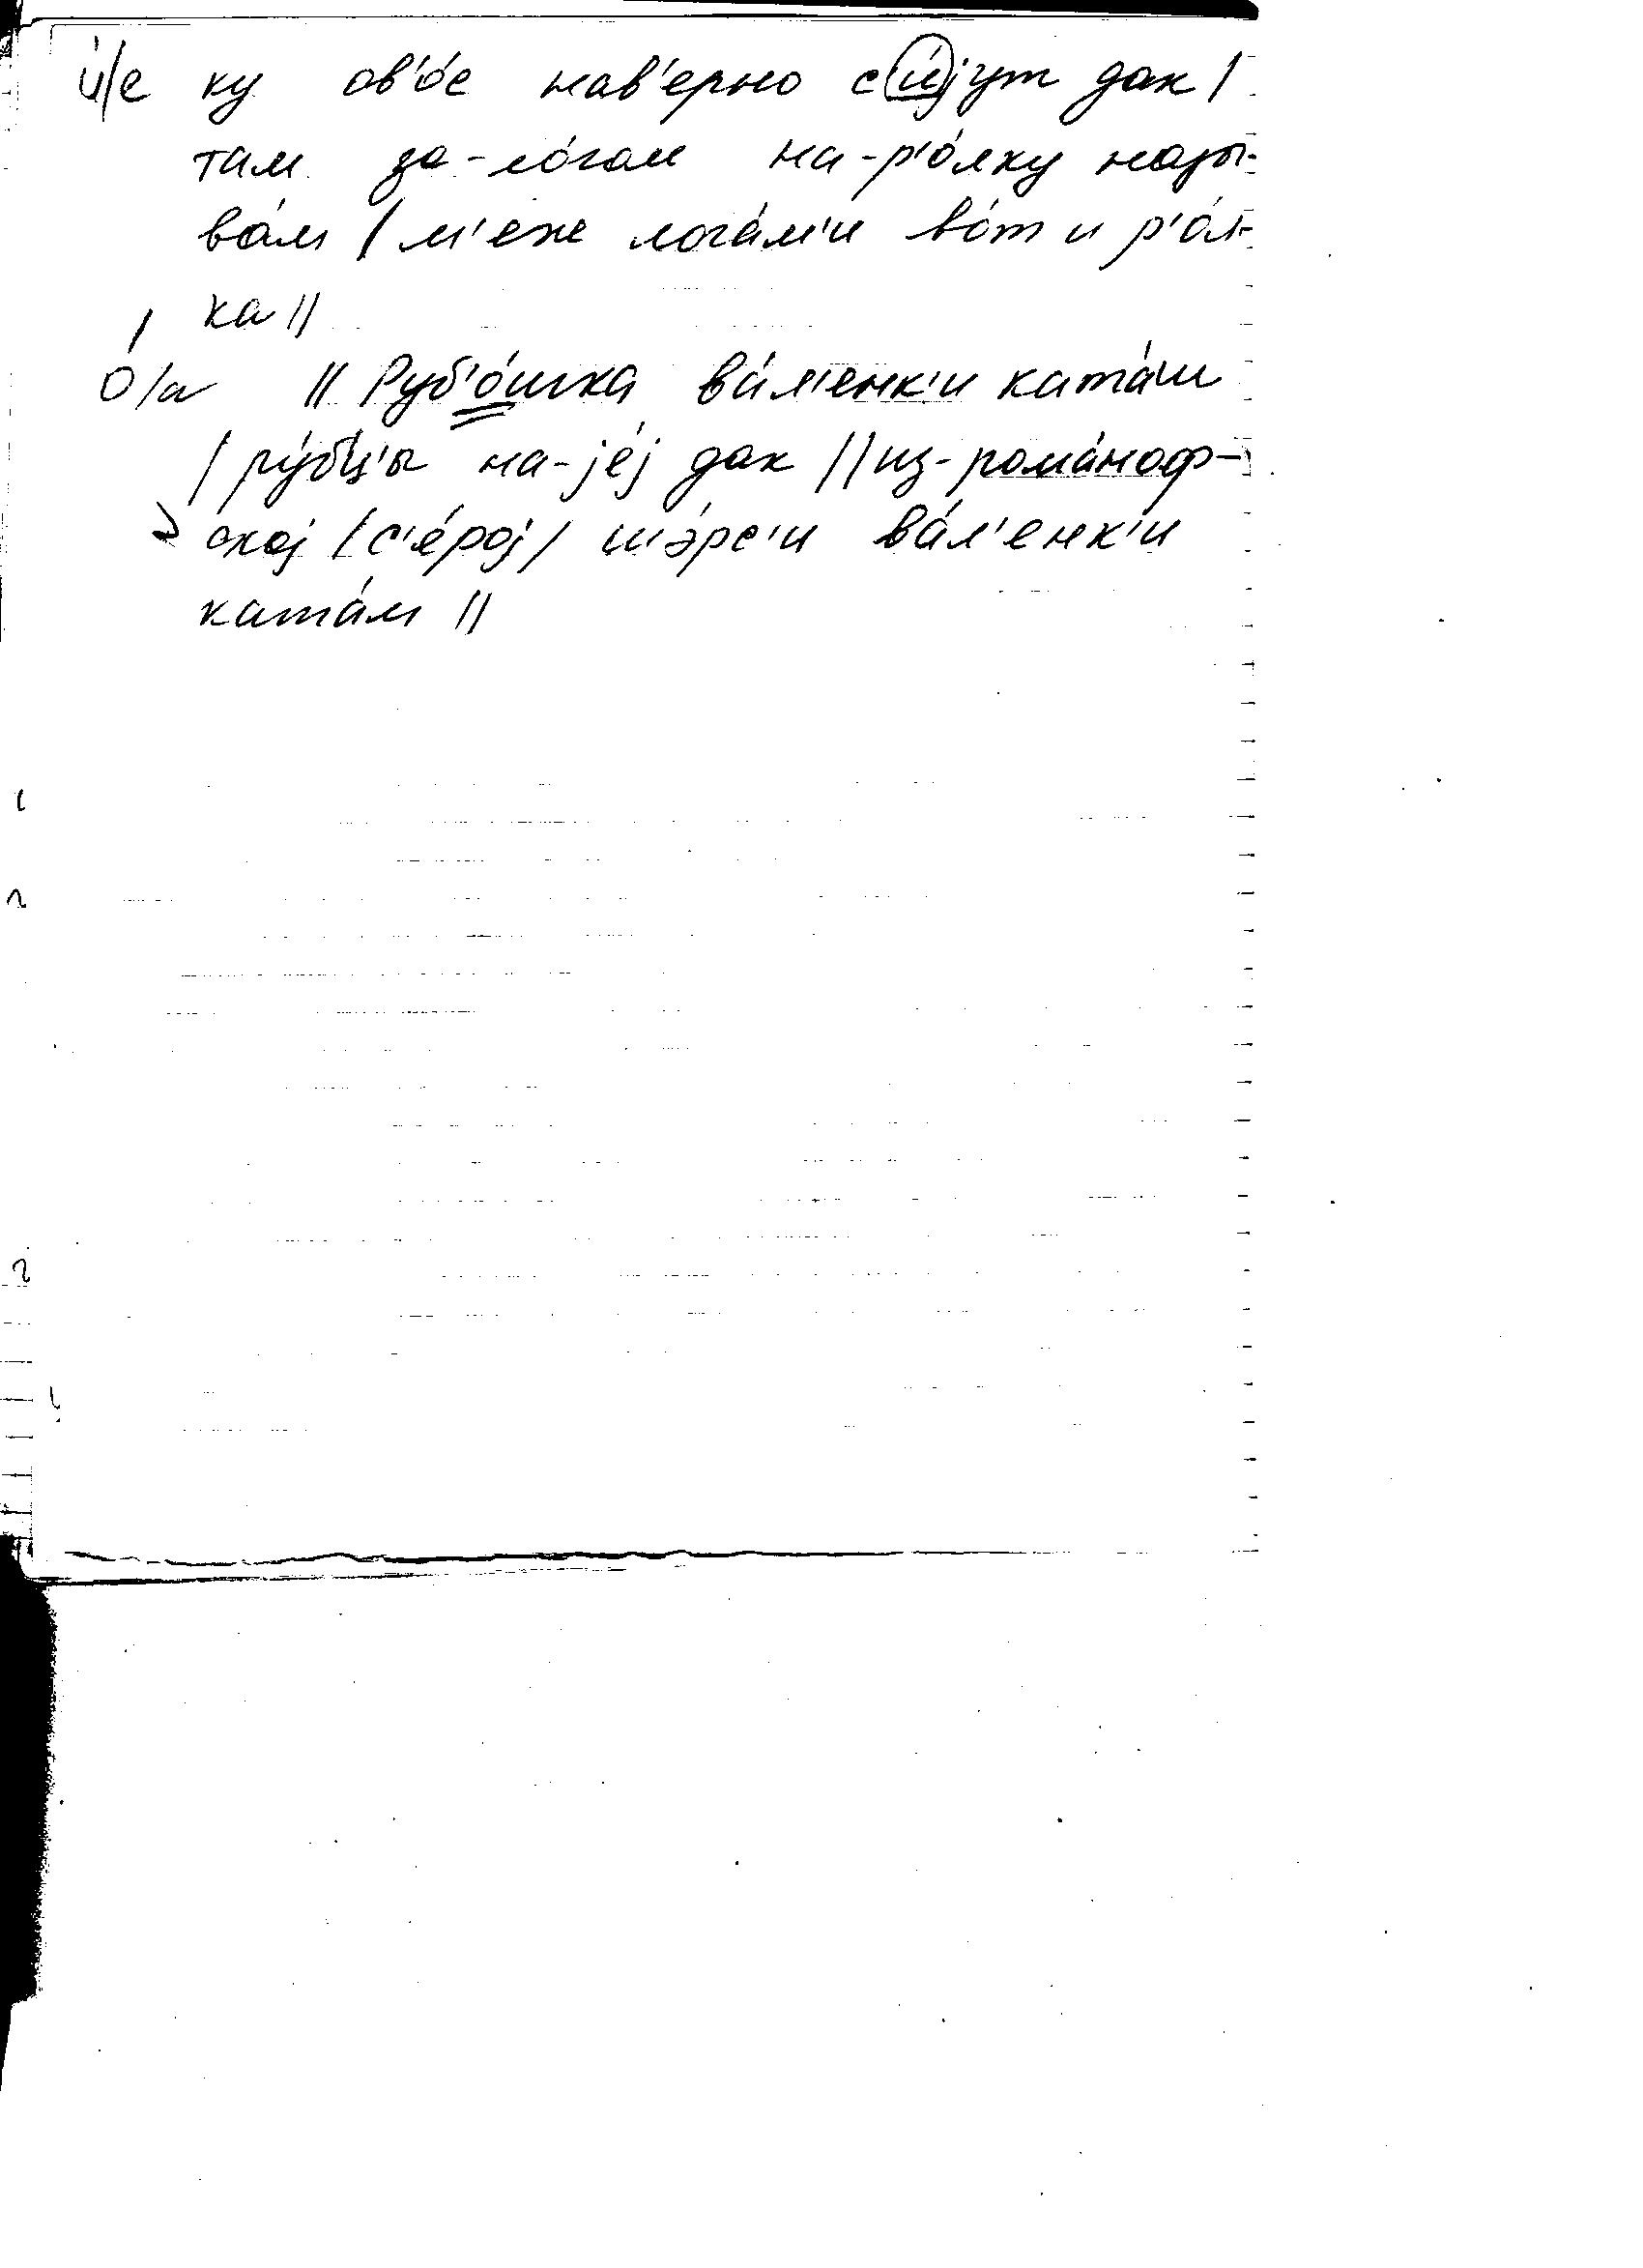 и́/е ку ов'о́с нав'ерно си́jут дак /
там за-ло́гом на-р'о́лку назы-
ва́м / м'еже лога́м'и во́т и р'о́л-
ка //
о́/а // Руб'о́шка ва́л'енк'и ката́ш
/ ру́бц'ы на-jéj дак // из-рома́ноф-
скоj /с'е́роj/ ш'э́рс'и ва́л'енк'и
ката́м //